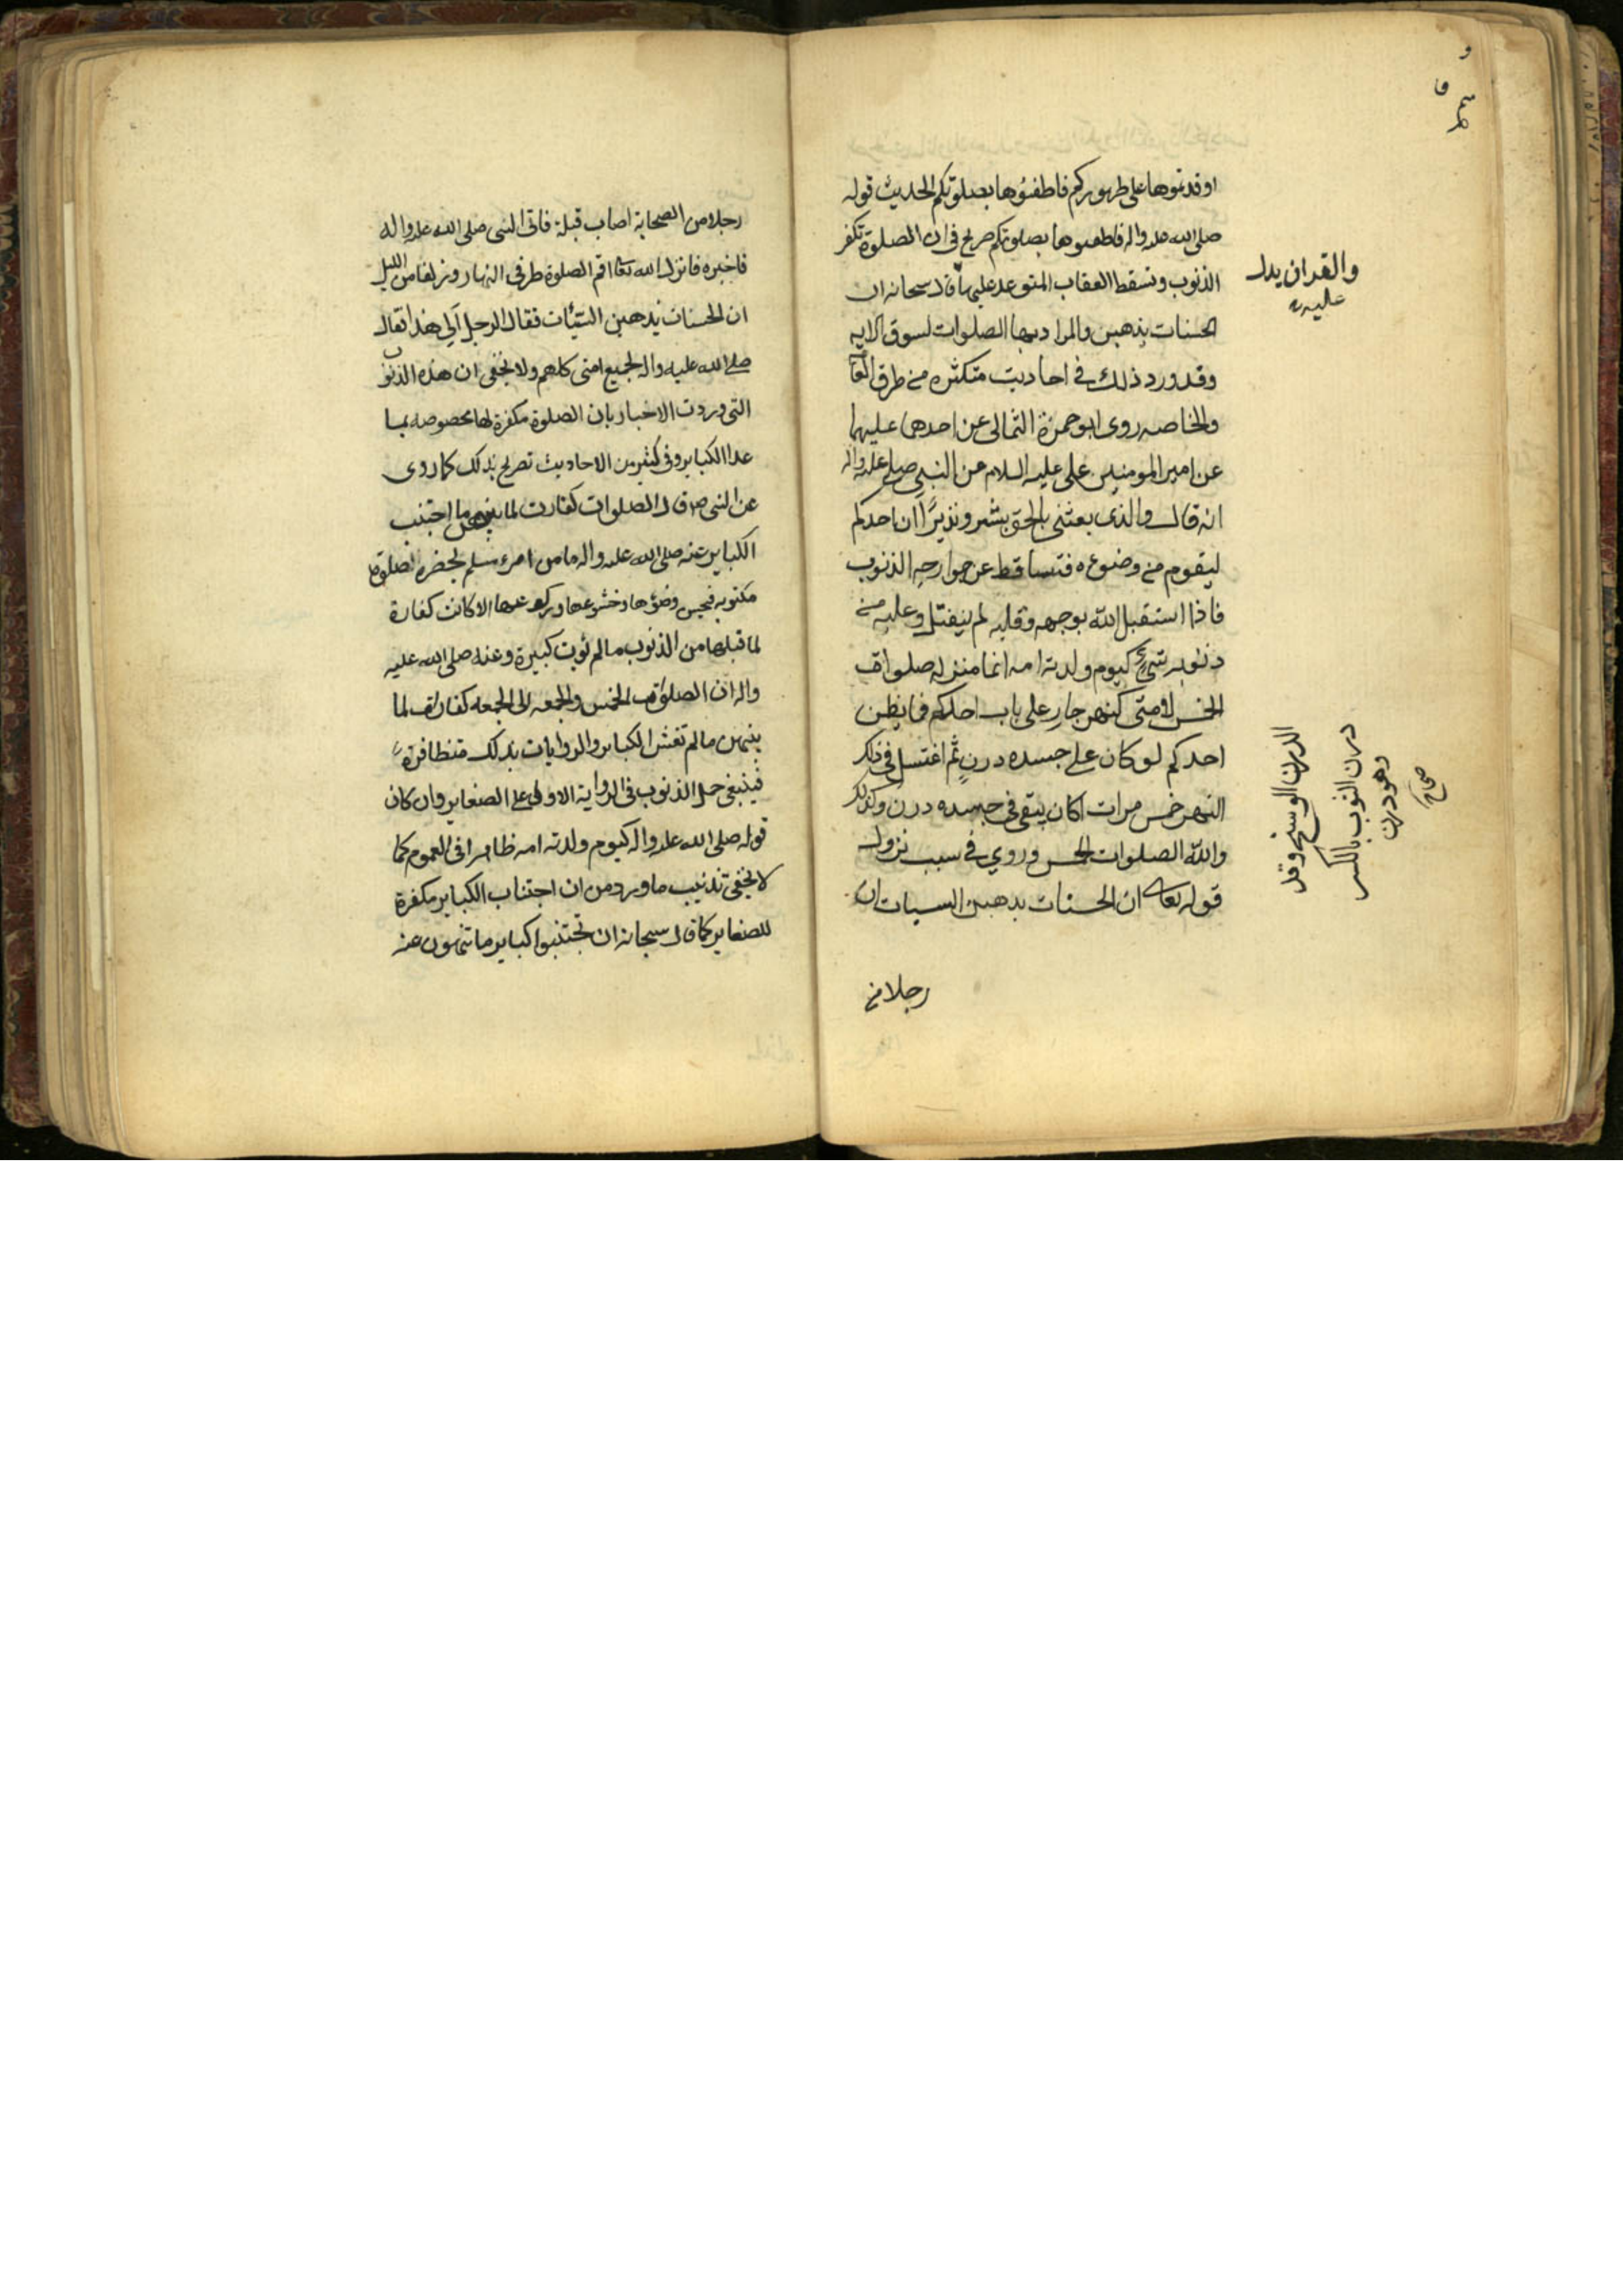 اوقدتموها على ظهوركم فاطفئوها بصلوتكم الحديث قوله
صلى الله عليه واله فاطفئوها بصلوتكم صريح في ان الصلوة تكفر
الذنوب وتسقط العقاب المتوعد عليها قال سبحانه ان
والقران يدل
عليه
الحسنات يذهبن والمراد بها الصلوات لسوق الايه
وقد ورد ذلك في احاديث متكثره من طرق العامة
والخاصه روى ابو حمزة الثمالى عن احدهما عليهما
عن امير المومنين على عليه السلام عن النبي صلى عليه واله
انه قال والذى بعثنى بالحق بشيرا ونذيرًا ان احدكم
ليقوم من وضوءه فتساقط عن جوارحه الذنوب
فاذا استقبل الله بوجهه وقلبه لم ينفتل وعليه من
ذنوبه شئ كيوم ولدته امه انما منزله صلوات
الخمس لامتى كنهر جار على باب احدكم فما يظن
احدكم لو كان على جسده درن ثم اغتسل في ذلك
النهر خمس مرات اكان يبقى في جسده درن وكذلك
والله الصلوات الخمس وروي في سبب نزول
قوله تعالى ان الحسنات يذهبن السيات ان
الدرن الوسخ وقد
درن الثوب بالكسر
وهو درن
صحاح
رجلا من
رجلا من الصحابة اصاب قبلة فاتى النبى صلى الله عليه واله
فاخبره فانزل الله تعا اقم الصلوة طرفى النهار وزلفا من الليل
ان الحسنات يذهبن السيّئات فقال الرجل ألي هذا فقال
صلى الله عليه واله لجميع امتى كلهم ولا يخفى ان هذه الذنوب
التى وردت الاخبار بان الصلوة مكفرة لها مخصوصه بما
عدا الكباير وفى كثير من الاحاديث تصريح بذلك كما روى
عن النبى ص قال الصلوات كفارت لما بينهن ما اجتنب
الكباير عنه صلى الله عليه واله ما من امرء مسلم يحضره صلوة
مكتوبه فيحسن وضؤها وخشوعها وركوعها الا كانت كفارة
لما قبلها من الذنوب ما لم تؤت كبيرة وعنه صلى الله عليه
واله ان الصلوات الخمس والجمعه الى الجمعه كفارات لما
بينهن ما لم تغش الكباير والروايات بذلك متظافرة
فينبغى حمل الذنوب فى الرواية الاولى على الصغاير وان كان
قوله صلى الله عليه واله كيوم ولدته امه ظاهرا فى العموم كما
لا يخفى تذنيب ما ورد من ان اجتناب الكباير مكفرة
للصغاير كما قال سبحانه ان تجتنبوا كباير ما تنهون عنه